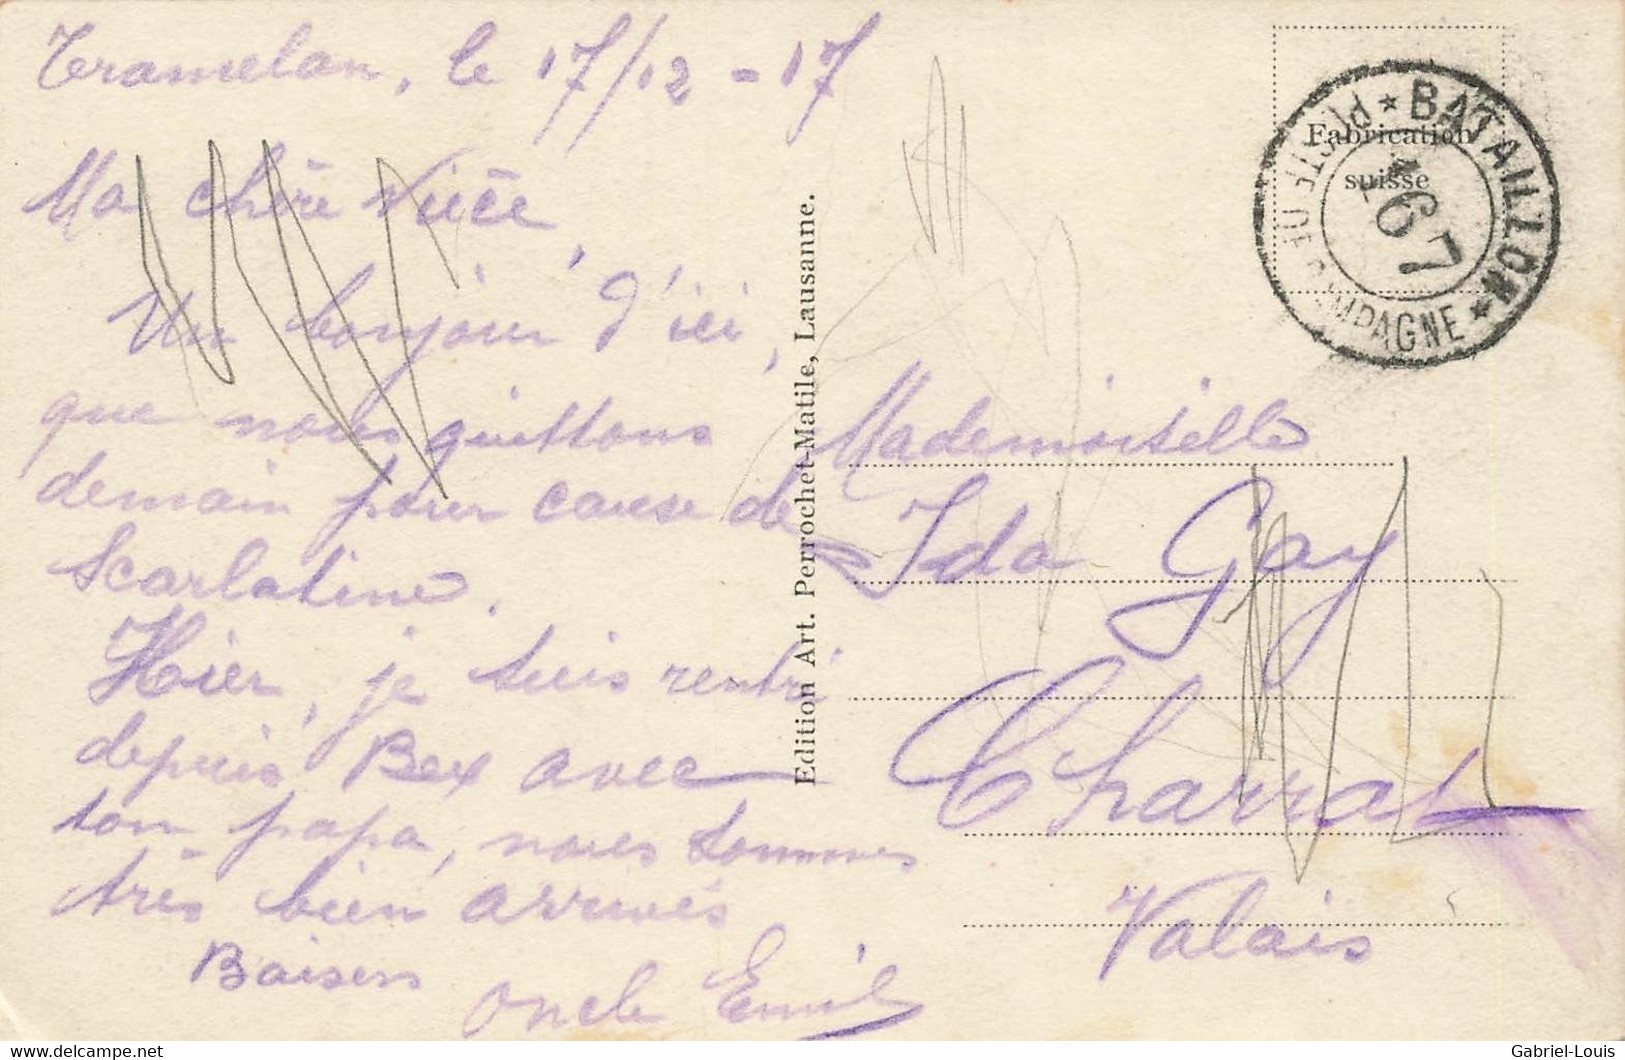 Tramelan, le 17/12 - 17
Ma chère Nièce,
Un bonjour d'ici,
que nous quittons
demain pour cause de
Scarlatine.
Hier, je suis rentré
depuis Bex avec
ton papa, nous sommes
très bien arrivés
Baisers
Oncle Emil
Edition Art. Perrochet-Matile, Lausanne.
Fabrication
suisse
★ BATAILLON ★
POSTE DE CAMPAGNE
167
Mademoiselle
Ida Gay
Charrat
Valais
www.delcampe.net
Gabriel-Louis